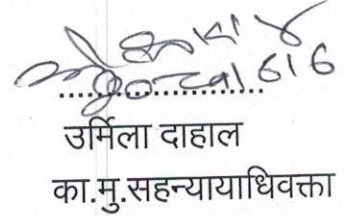 ..................
उर्मिला दाहाल
का.मु.सहन्यायाधिवक्ता